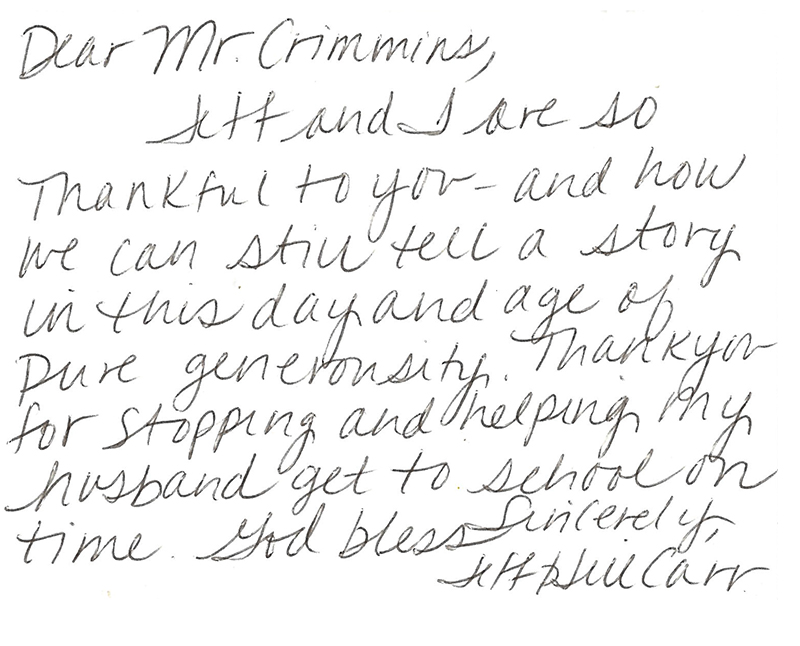 Dear Mr. Crimmins,
Jeff and I are so
Thankful to you - and how
we can still tell a story
in this day and age of
pure generousity. Thank you
for stopping and helping my
husband get to school on
time. God bless Sincerely,
Jeff & Jill Carr